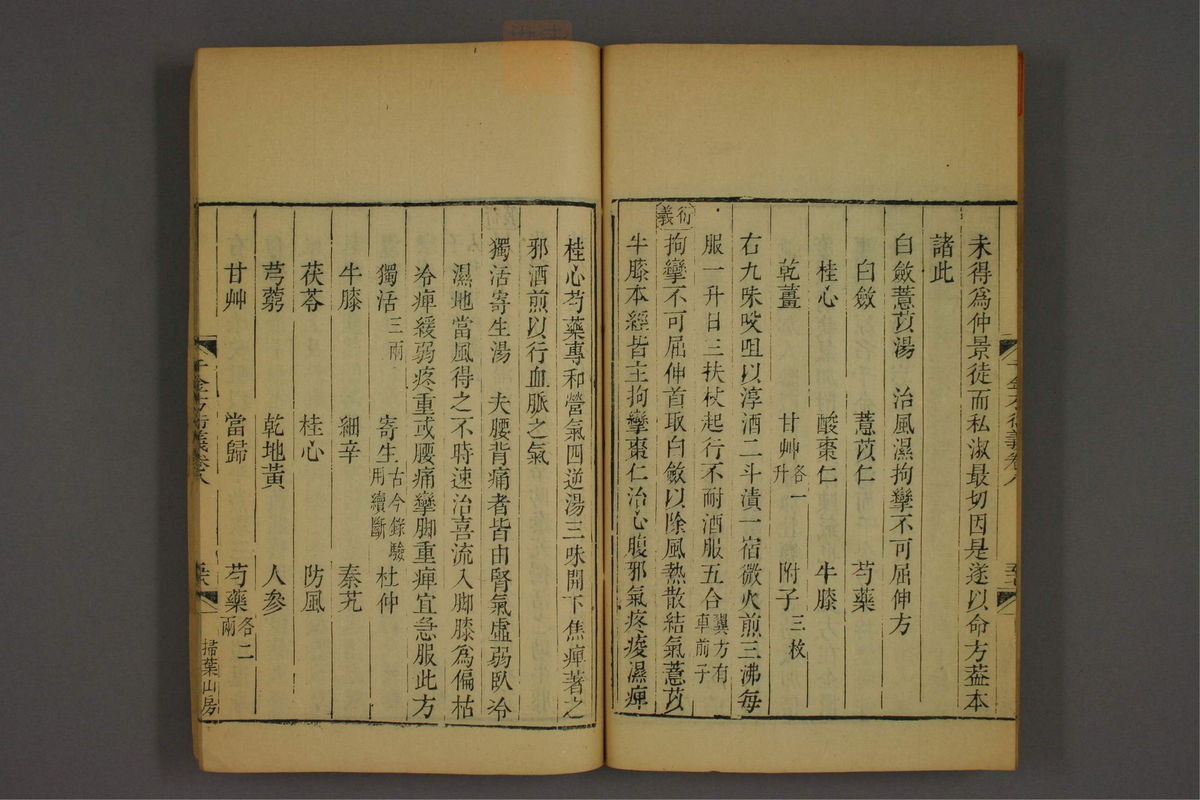 未得爲仲景徒而私淑最切因是遂以命方葢本
諸此
白斂薏苡湯 治風濕拘攣不可屈伸方
白斂 薏苡仁 芍藥
桂心 酸棗仁 牛膝
乾薑 甘艸各一升 附子三枚
右九味㕮咀以淳酒二斗漬一宿微火煎三沸每
服一升日三扶杖起行不耐酒服五合翼方有車前子
衍義
拘攣不可屈伸首取白斂以除風熱散結氣薏苡
牛膝本經皆主拘攣棗仁治心腹邪氣疼痠濕痺
桂心芍藥專和營氣四逆湯三味開下焦痺著之
邪酒煎以行血脈之氣
獨活寄生湯 夫腰背痛者皆由腎氣虛弱臥冷
濕地當風得之不時速治喜流入脚膝爲偏枯
冷痺緩弱疼重或腰痛攣脚重痺宜急服此方
獨活三兩 寄生古今錄驗用續斷 杜仲
牛膝 細辛 秦艽
茯苓 桂心 防風
芎藭 乾地黃 人參
甘艸 當歸 芍藥各二兩
千金方衍義卷八
掃葉山房